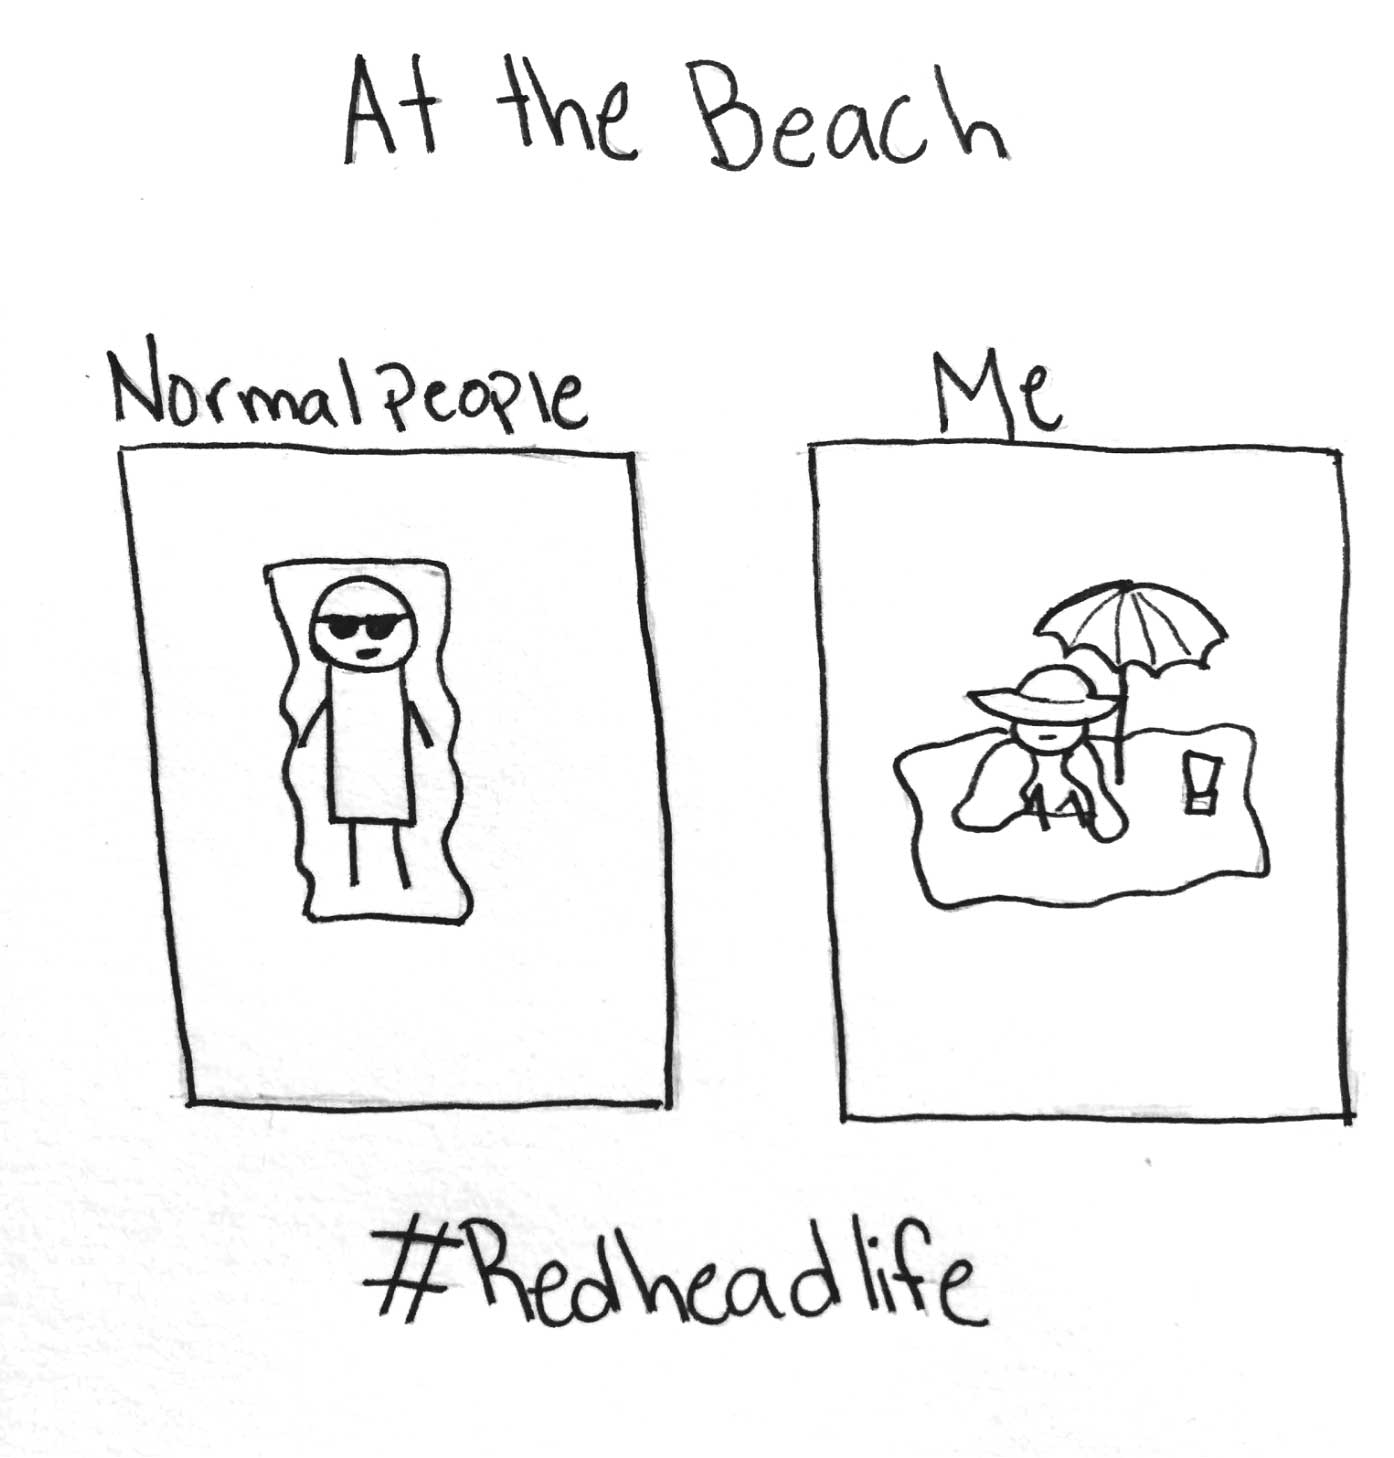 At the Beach
Normal People
Me
#Redheadlife